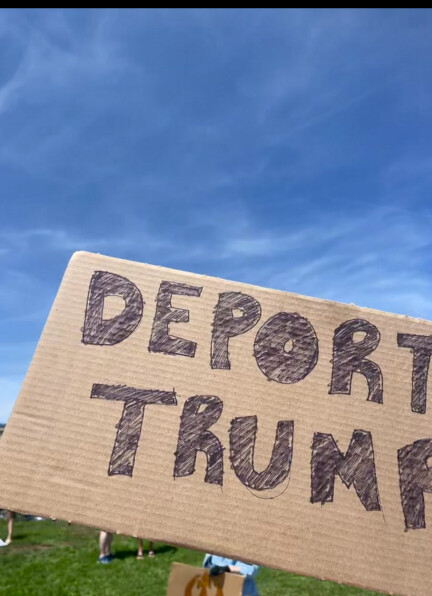 DEPORT
TRUMP